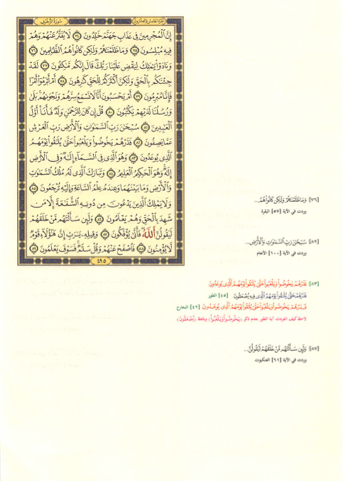 الجزء الخامس والعشرون سورة الزخرف
إِنَّ ٱلْمُجْرِمِينَ فِى عَذَابِ جَهَنَّمَ خَٰلِدُونَ ٧٤ لَا يُفَتَّرُ عَنْهُمْ وَهُمْ
فِيهِ مُبْلِسُونَ ٧٥ وَمَا ظَلَمْنَٰهُمْ وَلَٰكِن كَانُوا۟ هُمُ ٱلظَّٰلِمِينَ ٧٦
وَنَادَوْا۟ يَٰمَٰلِكُ لِيَقْضِ عَلَيْنَا رَبُّكَ قَالَ إِنَّكُم مَّٰكِثُونَ ٧٧ لَقَدْ
جِئْنَٰكُم بِٱلْحَقِّ وَلَٰكِنَّ أَكْثَرَكُمْ لِلْحَقِّ كَٰرِهُونَ ٧٨ أَمْ أَبْرَمُوٓا۟ أَمْرًا
فَإِنَّا مُبْرِمُونَ ٧٩ أَمْ يَحْسَبُونَ أَنَّا لَا نَسْمَعُ سِرَّهُمْ وَنَجْوَىٰهُم بَلَىٰ
وَرُسُلُنَا لَدَيْهِمْ يَكْتُبُونَ ٨٠ قُلْ إِن كَانَ لِلرَّحْمَٰنِ وَلَدٌ فَأَنَا۠ أَوَّلُ
ٱلْعَٰبِدِينَ ٨١ سُبْحَٰنَ رَبِّ ٱلسَّمَٰوَٰتِ وَٱلْأَرْضِ رَبِّ ٱلْعَرْشِ
عَمَّا يَصِفُونَ ٨٢ فَذَرْهُمْ يَخُوضُوا۟ وَيَلْعَبُوا۟ حَتَّىٰ يُلَٰقُوا۟ يَوْمَهُمُ
ٱلَّذِى يُوعَدُونَ ٨٣ وَهُوَ ٱلَّذِى فِى ٱلسَّمَآءِ إِلَٰهٌ وَفِى ٱلْأَرْضِ
إِلَٰهٌ وَهُوَ ٱلْحَكِيمُ ٱلْعَلِيمُ ٨٤ وَتَبَارَكَ ٱلَّذِى لَهُۥ مُلْكُ ٱلسَّمَٰوَٰتِ
وَٱلْأَرْضِ وَمَا بَيْنَهُمَا وَعِندَهُۥ عِلْمُ ٱلسَّاعَةِ وَإِلَيْهِ تُرْجَعُونَ ٨٥
وَلَا يَمْلِكُ ٱلَّذِينَ يَدْعُونَ مِن دُونِهِ ٱلشَّفَٰعَةَ إِلَّا مَن
شَهِدَ بِٱلْحَقِّ وَهُمْ يَعْلَمُونَ ٨٦ وَلَئِن سَأَلْتَهُم مَّنْ خَلَقَهُمْ
لَيَقُولُنَّ ٱللَّهُ فَأَنَّىٰ يُؤْفَكُونَ ٨٧ وَقِيلِهِۦ يَٰرَبِّ إِنَّ هَٰٓؤُلَآءِ قَوْمٌ
لَّا يُؤْمِنُونَ ٨٨ فَٱصْفَحْ عَنْهُمْ وَقُلْ سَلَٰمٌ فَسَوْفَ يَعْلَمُونَ ٨٩
٤٩٥
[٧٦] وَمَا ظَلَمْنَٰهُمْ وَلَٰكِن كَانُوا۟ هُمُ...
وردت في الآية [٥٧] البقرة
[٨٢] سُبْحَٰنَ رَبِّ ٱلسَّمَٰوَٰتِ وَٱلْأَرْضِ...
وردت في الآية [١٠٠] الأنعام
[٨٣] فَذَرْهُمْ يَخُوضُوا۟ وَيَلْعَبُوا۟ حَتَّىٰ يُلَٰقُوا۟ يَوْمَهُمُ ٱلَّذِى يُوعَدُونَ
فَذَرْهُمْ حَتَّىٰ يُلَٰقُوا۟ يَوْمَهُمُ ٱلَّذِى فِيهِ يُصْعَقُونَ [٤٥] الطور
فَذَرْهُمْ يَخُوضُوا۟ وَيَلْعَبُوا۟ حَتَّىٰ يُلَٰقُوا۟ يَوْمَهُمُ ٱلَّذِى يُوعَدُونَ [٤٢] المعارج
آية الطور بعدم ذكر (يَخُوضُوا۟ وَيَلْعَبُوا۟) (يُصْعَقُونَ)
[٨٧] وَلَئِن سَأَلْتَهُم مَّنْ خَلَقَهُمْ لَيَقُولُنَّ...
وردت في الآية [٦١] العنكبوت